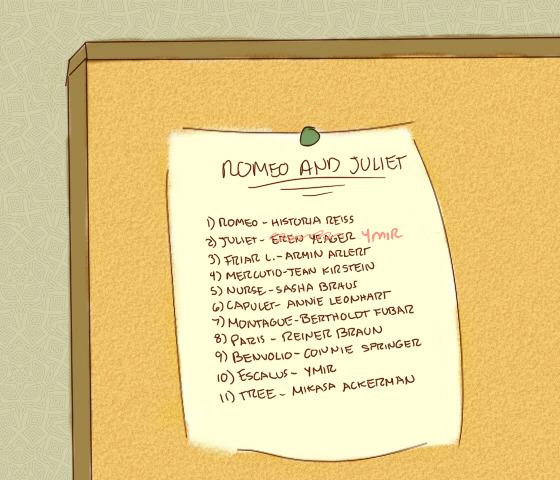 ROMEO AND JULIET
1) ROMEO - HISTORIA REISS
2) JULIET - EREN YEAGER YMIR
3) FRIAR L. - ARMIN ARLERT
4) MERCUTIO - JEAN KIRSTEIN
5) NURSE - SASHA BRAUS
6) CAPULET - ANNIE LEONHART
7) MONTAGUE - BERTHOLDT FUBAR
8) PARIS - REINER BRAUN
9) BENVOLIO - CONNIE SPRINGER
10) ESCALUS - YMIR
11) TREE - MIKASA ACKERMAN